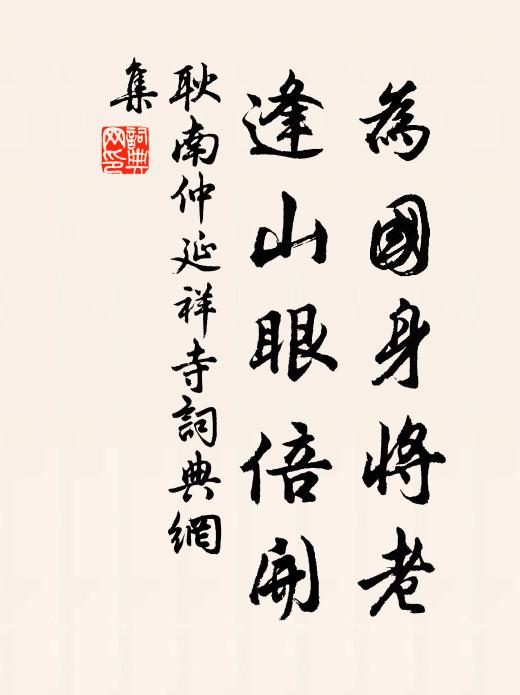 為國身將老
逢山眼倍開
耿南仲延祥寺詞典網
集
詞典
网印